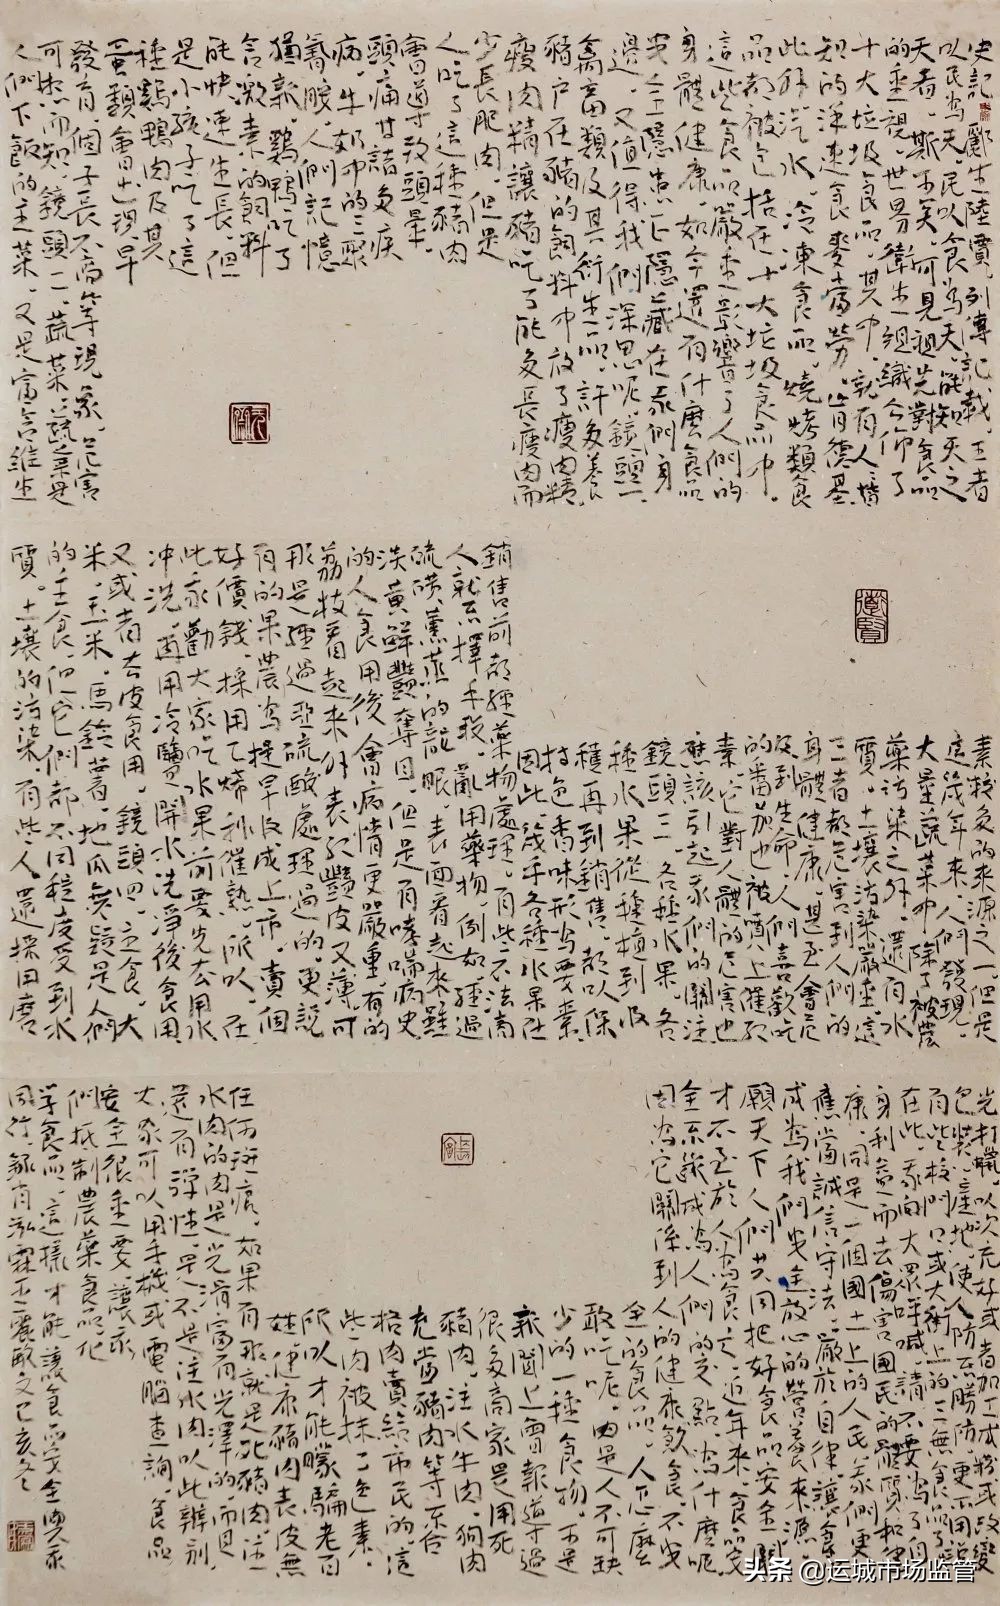 史記 酈生陸賈列傳記載，王者
以民為天，民以食為天，能知天之
天者，斯可矣。可見祖先對食品
的重視。世界衛生組織公佈了
十大垃圾食品，其中，就有人人皆
知的洋速食麥當勞，肯德基，
此外，汽水，冷凍食品，燒烤類食
品都被包括在十大垃圾食品中。
這些食品嚴重影響了人們的
身體健康，如今還有什麼食品
安全隱患正隱藏在我們身
邊，又值得我們深思呢。鏡頭一，
禽畜類及其衍生品，許多養
豬戶在豬的飼料中放了瘦肉精，
瘦肉精讓豬吃了能多長瘦肉而
少長肥肉，但是
人吃了這種豬肉
會導致頭暈，
頭痛甘諸多疾
病，牛奶中的三聚
氰胺，人們記憶
猶新，雞鴨吃了
含激素的飼料
能快速生長，但
是小孩子吃了這
種雞鴨肉及其
蛋類會出現早
發育，個子長不高等現象，危害
可想而知。鏡頭二，蔬菜，蔬菜是
人們下飯的主菜，又是富含維生
素較多的來源之一，但是
這幾年來，人們發現，
大量蔬菜中除了被農
藥污染之外，還有水
質，土壤污染嚴重，這
三者都危害到人們的
身體健康，甚至會危
及到生命，人們喜歡吃
的番茄也被噴上催紅
素，它對人體的危害也
應該引起我們的關注。
鏡頭三，各種水果，各
種水果從種植到收
穫再到銷售，都以保
持色香味形為要素，
因此，幾乎各種水果在
銷售前都經藥物處理，有些不法商
人就不擇手段，亂用藥物，例如，經過
硫磺熏蒸的龍眼，表面看起來雖
淡黃鮮豔奪目，但是有哮喘病史
的人食用後會病情更嚴重，有的
荔枝看起來外表紅豔皮又薄，可
那是經過亞硫酸處理過的，更說
有的果農為提早收成上市，賣個
好價錢，採用乙烯利催熟，所以，在
此，我勸大家吃水果前要先去用水
沖洗，再用冷鹽開水洗淨後食用
又或者去皮食用。鏡頭四，主食，大
米，玉米，馬鈴薯，地瓜無疑是人們
的主食，但它們都不同程度受到水
質，土壤的污染，有些人還採用磨
光打蠟，以次充好或者加工翻或改變
包裝，產地，使人防不勝防，更不用說
有些校門口或大街上的三無食品了，
在此，我向大眾呼喊，請不要為了自
身利益而去傷害國民的體質和健
康，同是一個國土上的人民，我們更
應當誠信守法，嚴於自律，讓食品
成為我們安全放心的營養來源，
願天下人們共同把好食品安全關，
才不至於人為食亡，近年來，食品安
全不斷成為人們的交點，為什麼呢，
因為它關係到人的健康飲食，不安
全的食品，人怎麼
敢吃呢，肉是人不可缺
少的一種食物，可是
新聞上曾報道才過
很多商家是用死
豬肉，注水牛肉，狗肉
充當豬肉等不合
格肉賣給市民的，這
些肉被抹了色素，
所以才能朦騙老百
姓，健康豬肉表皮無
任何斑痕，如果有那就是死豬肉，注
水肉的肉是光滑富有光澤的，而且
還有彈性，是不是注水肉以此辨別，
大家可以用手機或電腦查詢，食品
安全很重要，讓我
們抵制農藥食品，化
學食品，這樣才能讓食品安全與我
同行，錄肖泓霖王震歐文己亥冬
头条 @运城市场监管